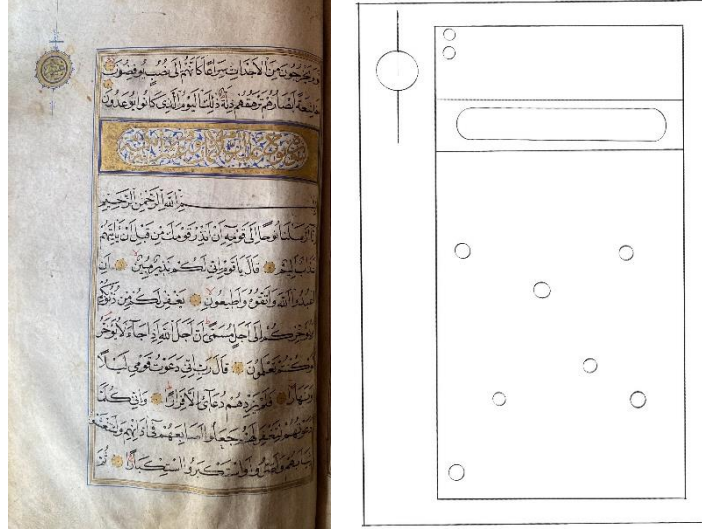 يخرجون من الاجداث سراعا كانهم الى نصب يوفضون
خاشعة ابصارهم ترهقهم ذلة ذلك اليوم الذي كانوا يوعدون
بسم الله الرحمن الرحيم
انا ارسلنا نوحا الى قومه ان انذر قومك من قبل ان ياتيهم
عذاب اليم قال يا قوم اني لكم نذير مبين ان
اعبدوا الله واتقوه واطيعون يغفر لكم من ذنوبكم
ويؤخركم الى اجل مسمى ان اجل الله اذا جاء لا يؤخر
لو كنتم تعلمون قال رب اني دعوت قومي ليلا
ونهارا فلم يزدهم دعائي الا فرارا واني كلما
دعوتهم لتغفر لهم جعلوا اصابعهم في اذانهم واستغشوا
ثيابهم واصروا واستكبروا استكبارا ثم